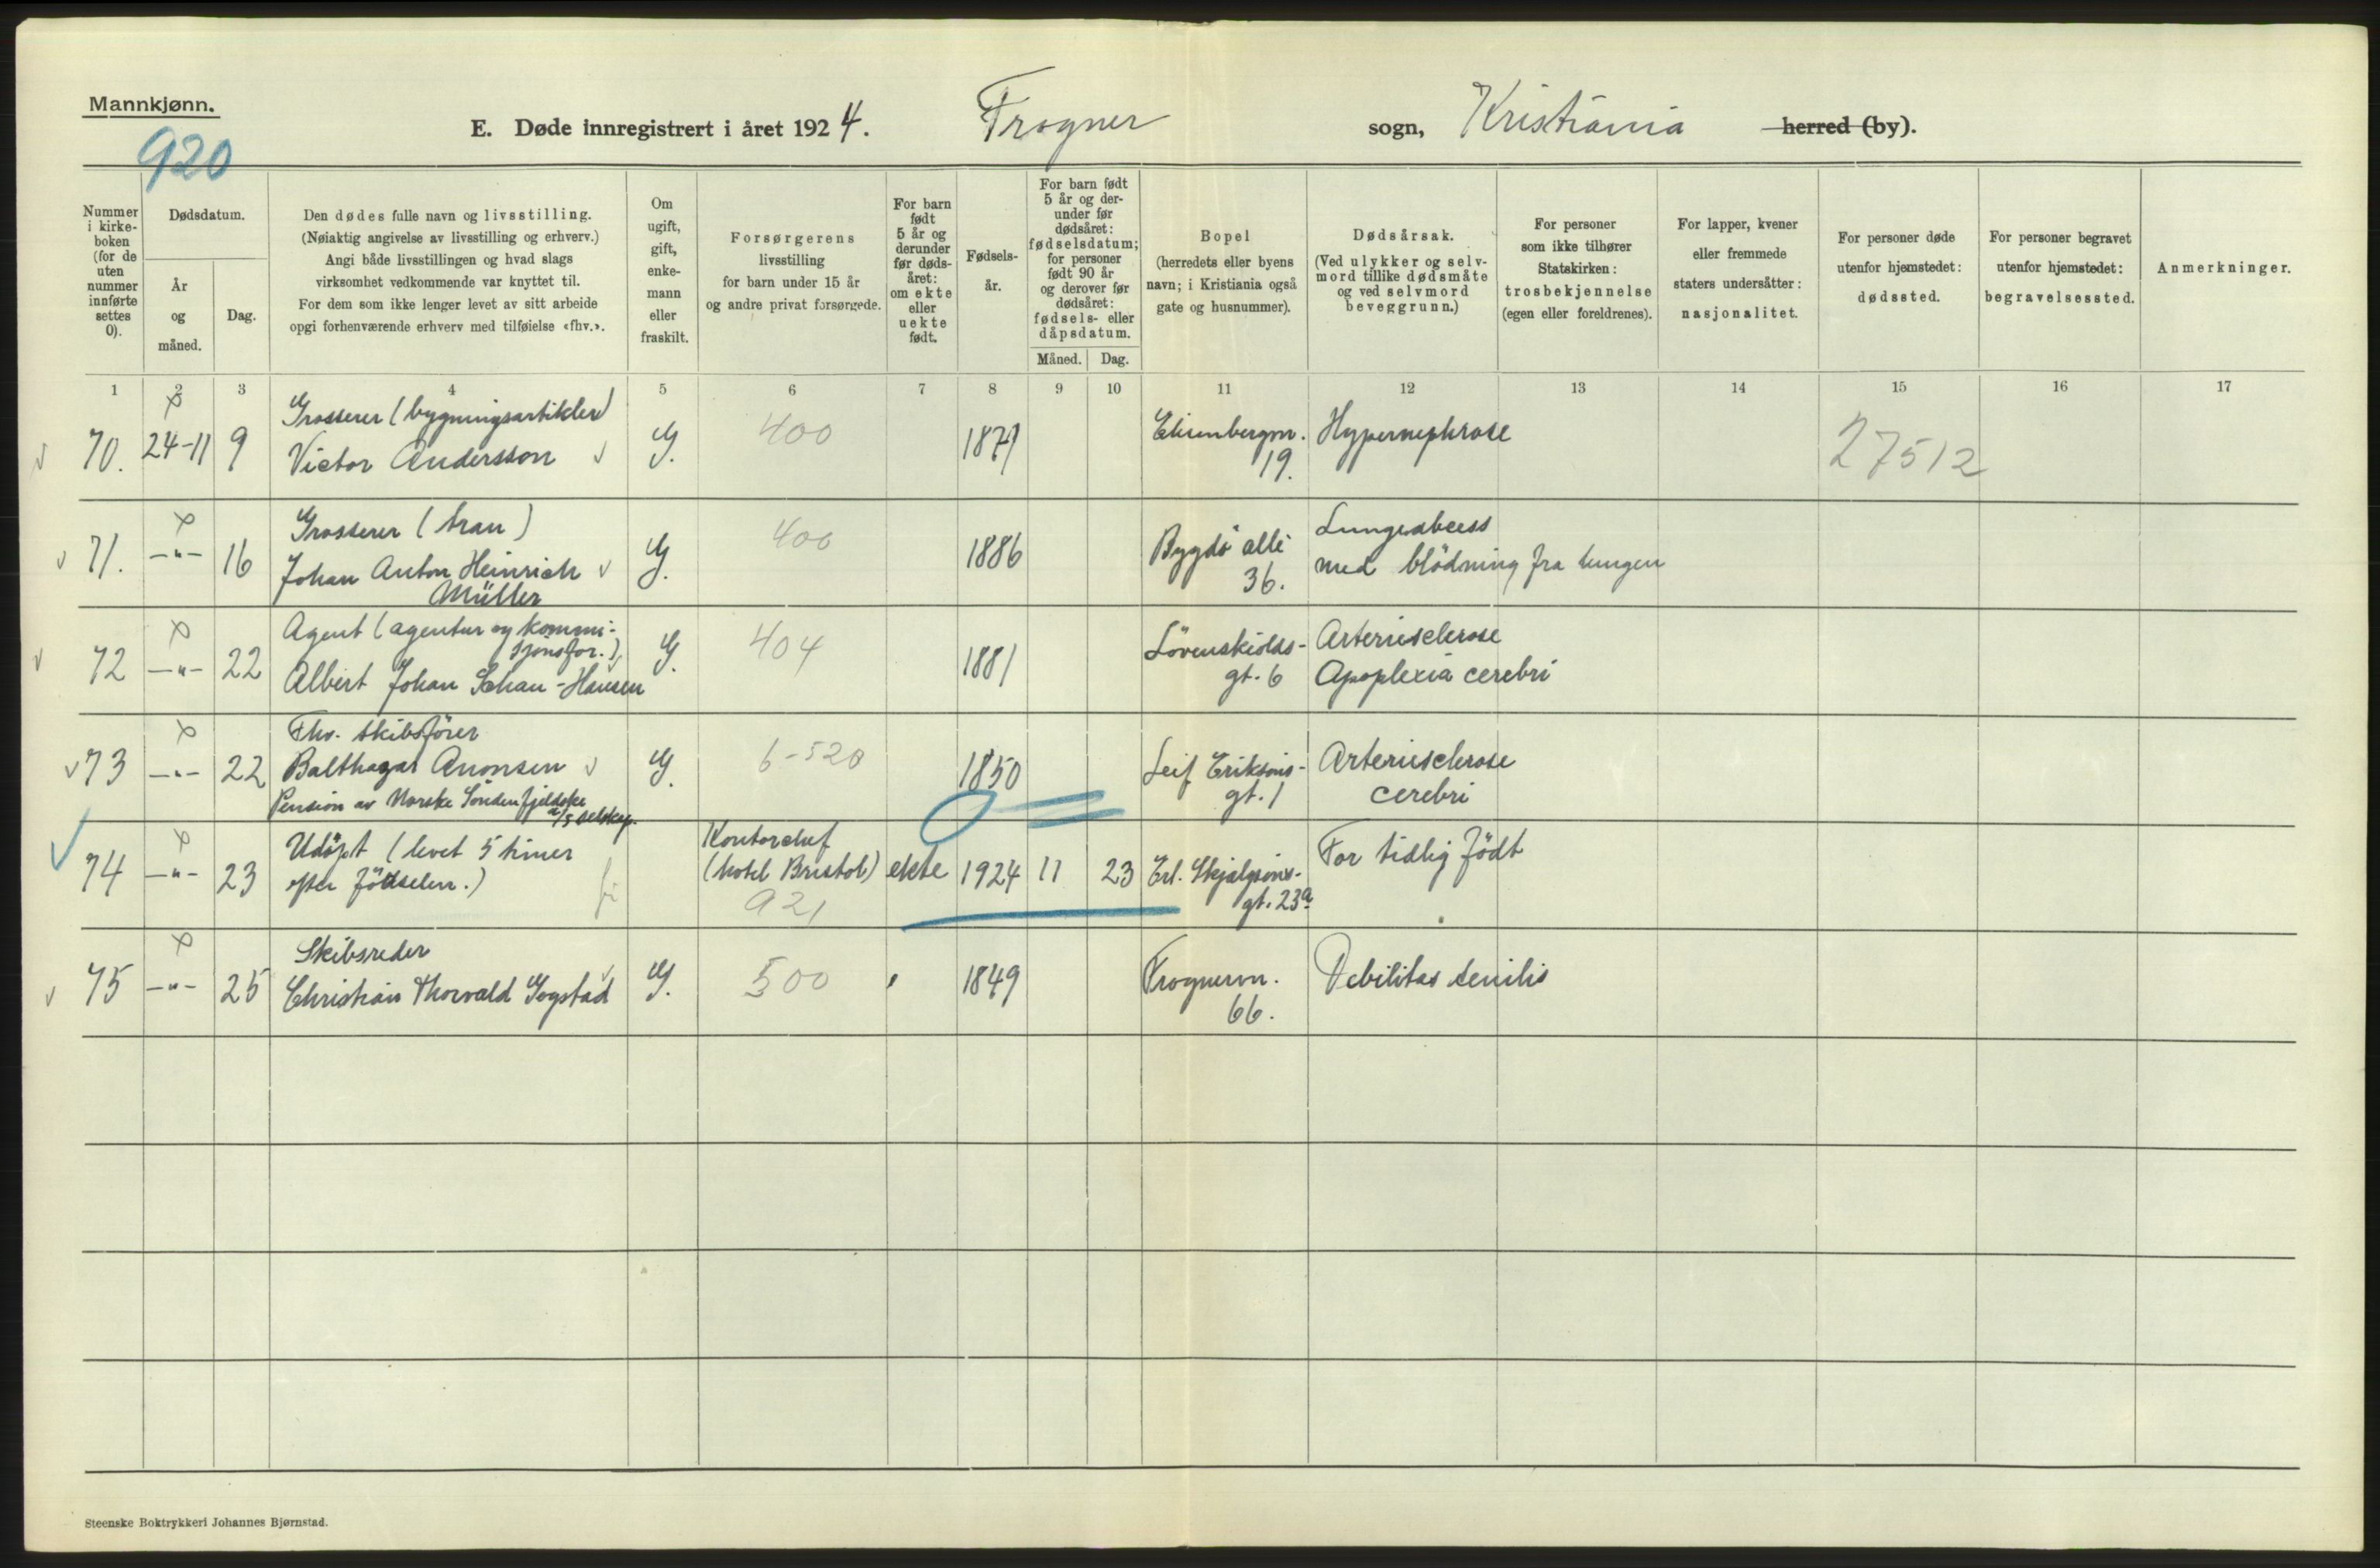 Mannkjønn.
920
E. Døde innregistrert i året 1924. Frogner sogn, Kristiania herred (by).
Nummer i kirke-boken (for de uten nummer innførte settes 0).
Dødsdatum.
År og måned.
Dag.
Den dødes fulle navn og livsstilling.
(Nøiaktig angivelse av livsstilling og erhverv.)
Angi både livsstillingen og hvad slags
virksomhet vedkommende var knyttet til.
For dem som ikke lenger levet av sitt arbeide
opgi forhenværende erhverv med tilføielse «fhv.».
Om ugift, gift, enke-mann eller fraskilt.
Forsørgerens
livsstilling
for barn under 15 år
og andre privat forsørgede.
For barn født 5 år og derunder før døds-året: om ekte eller uekte født.
Fødsels-år.
For barn født 5 år og der-under før dødsåret: fødselsdatum; for personer født 90 år og derover før dødsåret: fødsels- eller dåpsdatum.
Måned. Dag.
Bopel
(herredets eller byens
navn; i Kristiania også
gate og husnummer).
Dødsårsak.
(Ved ulykker og selv-
mord tillike dødsmåte
og ved selvmord
beveggrunn.)
For personer
som ikke tilhører
Statskirken:
trosbekjennelse
(egen eller foreldrenes).
For lapper, kvener
eller fremmede
staters undersåtter:
nasjonalitet.
For personer døde
utenfor hjemstedet:
dødssted.
For personer begravet
utenfor hjemstedet:
begravelsessted.
Anmerkninger.
1 2 3 4 5 6 7 8 9 10 11 12 13 14 15 16 17
Grosserer (bygningsartikler)
70. 24-11 9 Victor Andersson G. 400 1879 19. Hypernephrose 27512
Grosserer (tran)
71. -"- 16 Johan Anton Heinrich Müller G. 400 1886 Bygdö allé 36. Lungeabcess
med blödning fra lungen
Agent (agentur og kommi-
sjonsfor.)
72 -"- 22 Albert Johan Schau-Hansen G. 404 1881 Lövenskiolds-gt. 6 Arteriesclerose
Apoplexia cerebri
Fhv. skibsförer
73 -"- 22 Balthazar Aronsen G. 6-520 1850 Leif Eriksöns-gt. 1 Arteriesclerose
cerebri
Pension av Norske Söndenfjeldske
Udöpt (levet 5 timer
74 -"- 23 efter födselen.) Kontorchef
(hotel Bristol) 921 ekte 1924 11 23 Erl. Skjalgsöns-gt. 23a For tidlig född
Skibsreder
75 -"- 25 Christian Thorvald Gogstad G. 500 1849 Frognervn. 66. Debilitas senilis
Steenske Boktrykkeri Johannes Bjørnstad.